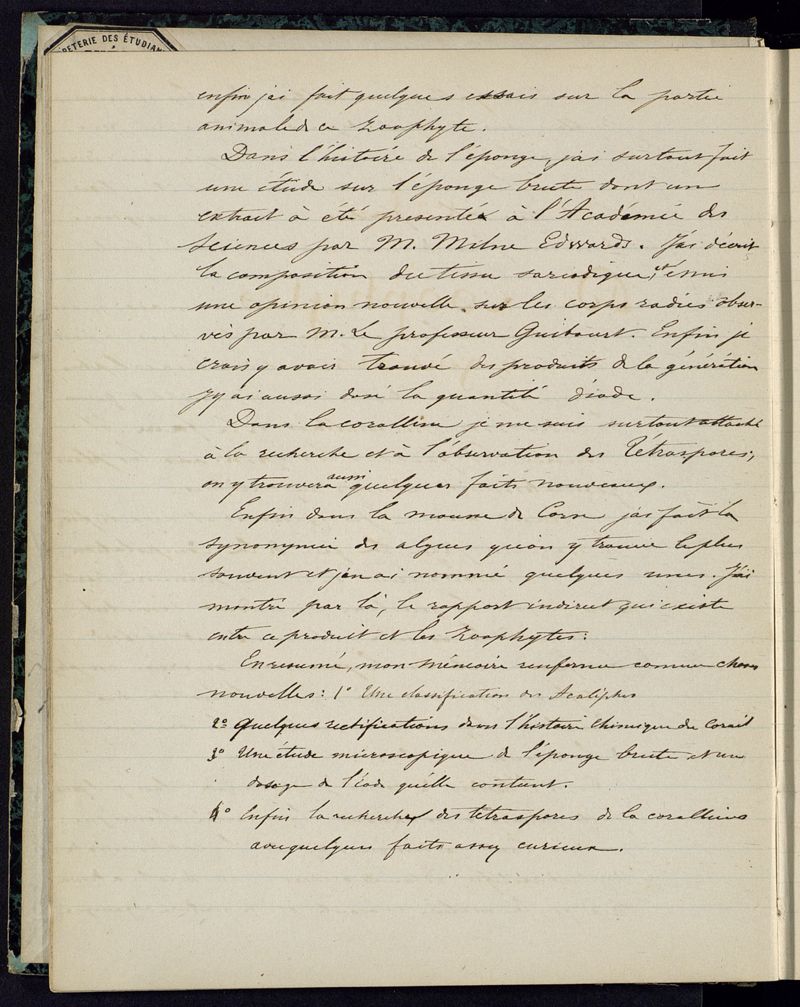 PETERIE DES ÉTUDIAN
enfin j'ai fait quelques essais sur la partie
animale de ce Zoophyte.
Dans l'histoire de l'éponge, j'ai surtout fait
une étude sur l'éponge brute dont un
extrait à été presenté à l'Académie des
Sciences par M. Milne Edwards. J'ai décrit
la composition du tissu sarcodique, et émis
une opinion nouvelle sur les corps radiés obser-
vés par M. Le professeur Guibourt. Enfin je
crois y avoir trouvé des produits de la génération
j'y ai aussi dosé la quantité d'iode.
Dans la coralline je me suis surtout attaché
à la recherche et à l'observation des Tétraspores;
on y trouvera aussi quelques faits nouveaux.
Enfin dans la mousse de Corse j'ai fait la
synonymie des algues qu'on y trouve le plus
souvent et j'en ai nommé quelques unes. J'ai
montré par là, le rapport indirect qui existe
entre ce produit et les Zoophytes:
En resumé, mon mémoire renferme comme choses
nouvelles: 1° Une classification des Acalèphes
2° Quelques rectifications dans l'histoire chimique du Corail
3° Une étude microscopique de l'éponge brute et un
dosage de l'iode qu'elle contient.
4° Enfin la recherche des tétraspores de la coralline
avec quelques faits assez curieux.